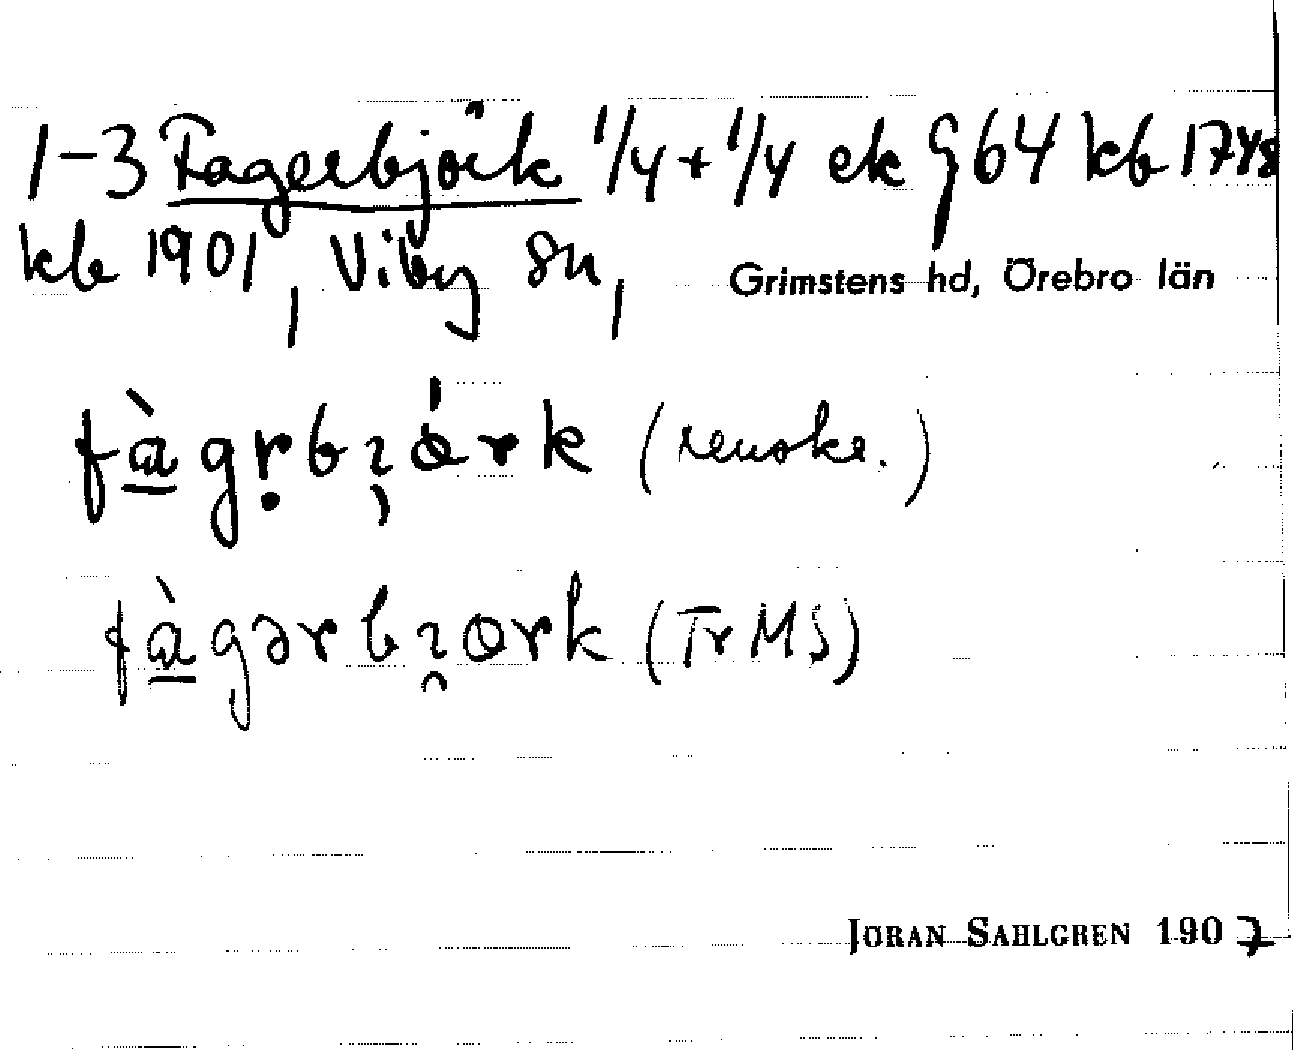 1-3 Fagerbjörk 1/4 + 1/4 ek G64 kb 1748
kb 1901, Viby sn, Grimstens hd, Örebro län
fàgṛbɿárk
fàgərbɿɵrk (Tr MS)
JÖRAN SAHLGREN 1907